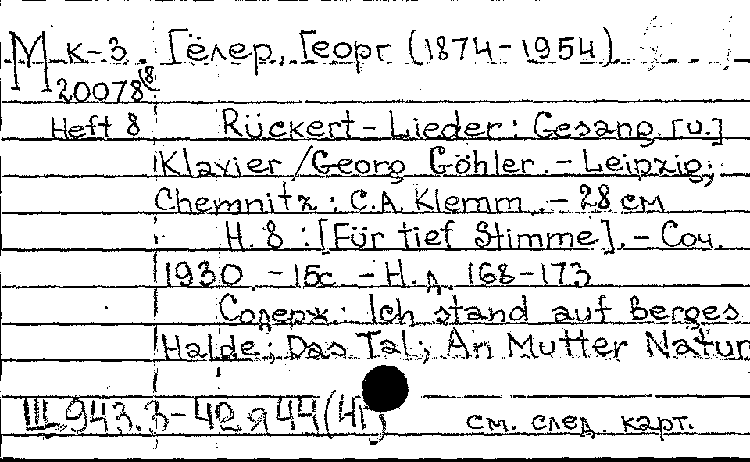 М К-3 Гёлер, Георг (1874-1954)
20078/8
Heft 8 Rückert-Lieder: Gesang [u.]
Klavier / Georg Göhler. - Leipzig;
Chemnitz: C.A. Klemm. - 28 см
H. 8: [Für tief Stimme]. - Соч.
1930. - 15с. - Н.д. 168-173
Содерж.: Ich stand auf Berges
Halde; Das Tal; An Mutter Natur
Ш 943.3-42 я 44(4Г)
см. след. карт.